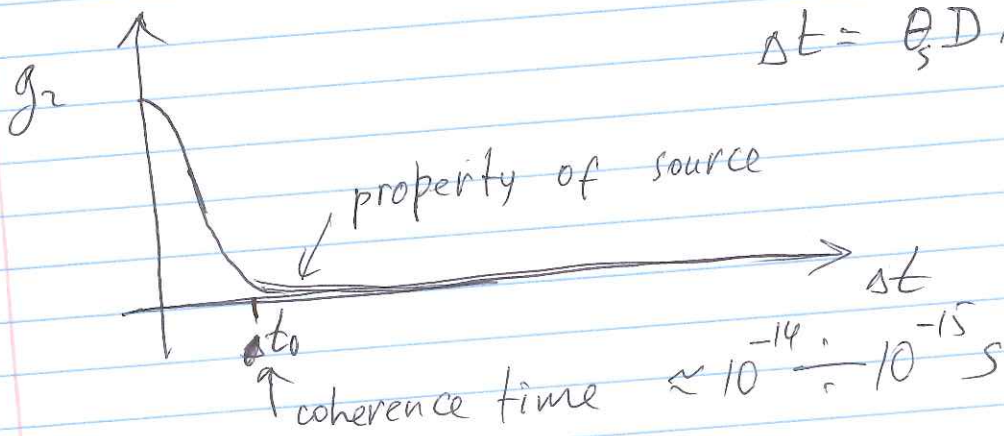 Δt = θₛ D
g₂
property of source
Δt
t₀
coherence time ≈ 10⁻¹⁴ ÷ 10⁻¹⁵ s